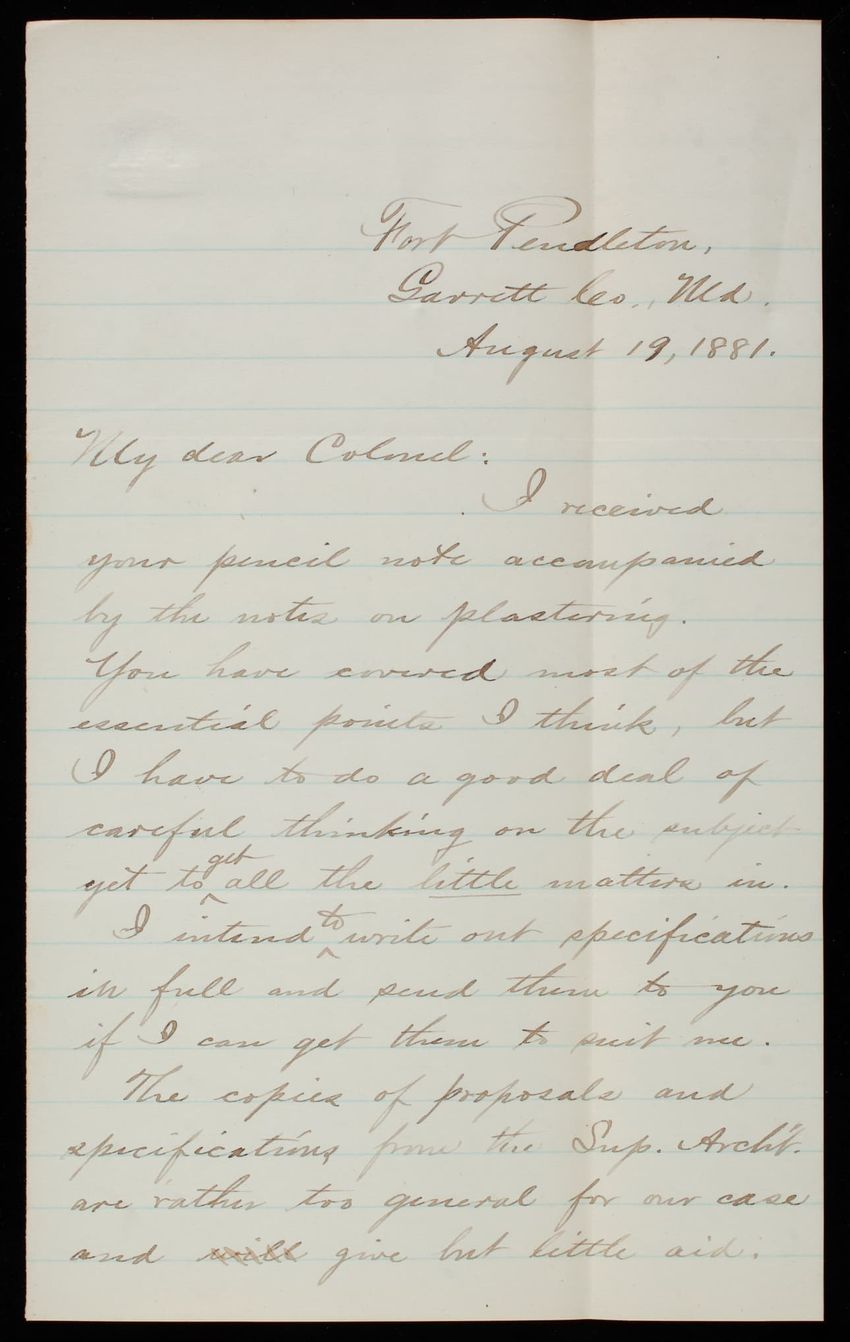 Fort Pendleton,
Garrett Co., Md.
August 19, 1881.
My dear Colonel:
I received
your pencil note accompanied
by the notes on plastering.
You have covered most of the
essential points I think, but
I have to do a good deal of
careful thinking on the subject
yet to get all the little matters in.
I intend to write out specifications
in full and send them to you
if I can get them to suit me.
The copies of proposals and
specifications from the Sup. Archt.
are rather too general for our case
and will give but little aid.